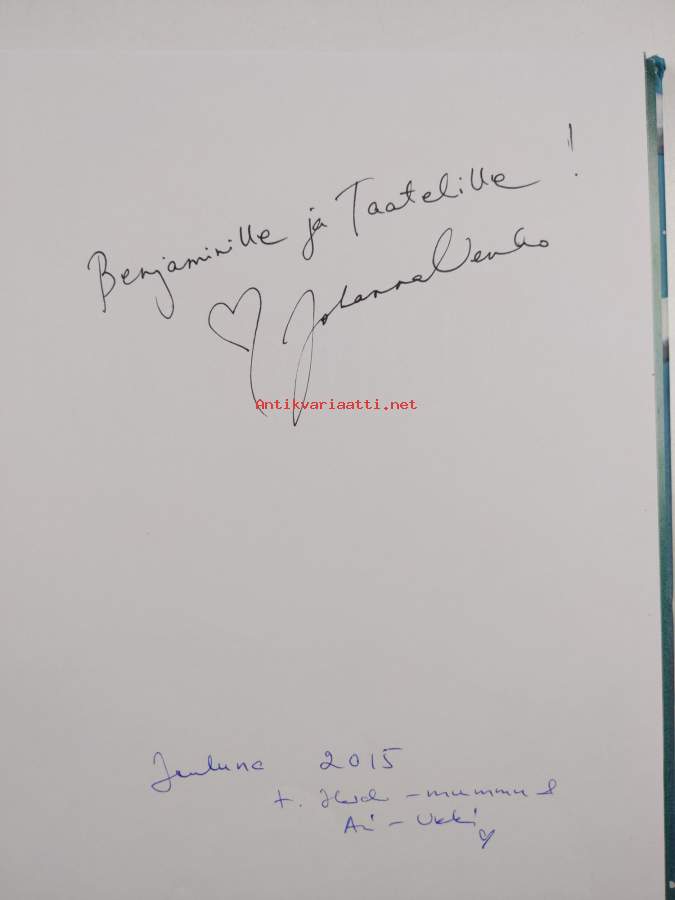 Benjaminille ja Taatelille!
♡ Johanna Venho
Antikvariaatti.net
Jouluna 2015
t. Heidi-mummu &
Ari-Ukki ♡